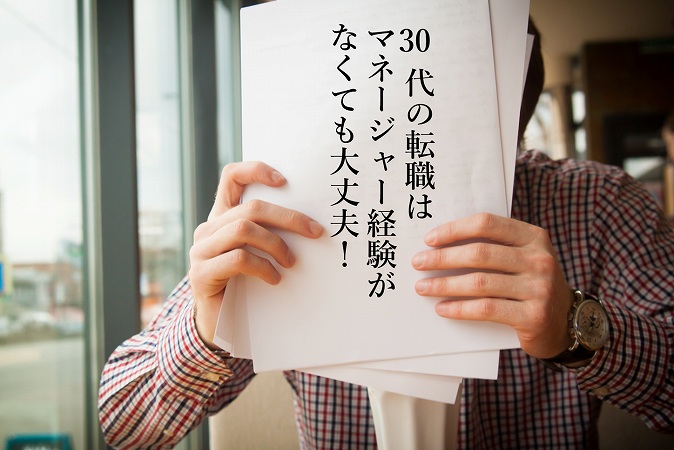 30 代の転職は
マネージャー経験が
なくても大丈夫！